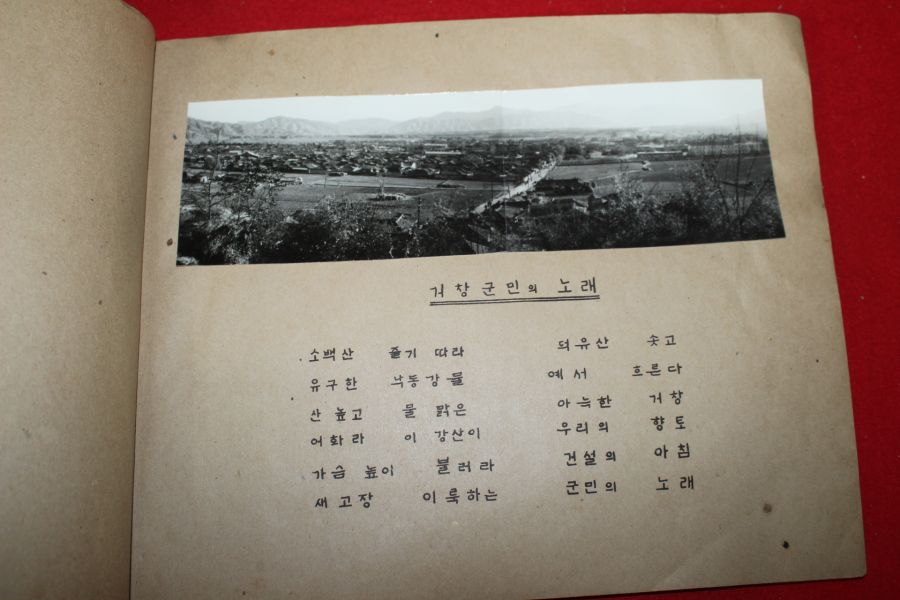 거창군민의 노래
소백산 줄기 따라 덕유산 솟고
유구한 낙동강물 예서 흐른다
산 높고 물 맑은 아늑한 거창
어화라 이 강산이 우리의 향토
가슴 높이 불러라 건설의 아침
새고장 이룩하는 군민의 노래